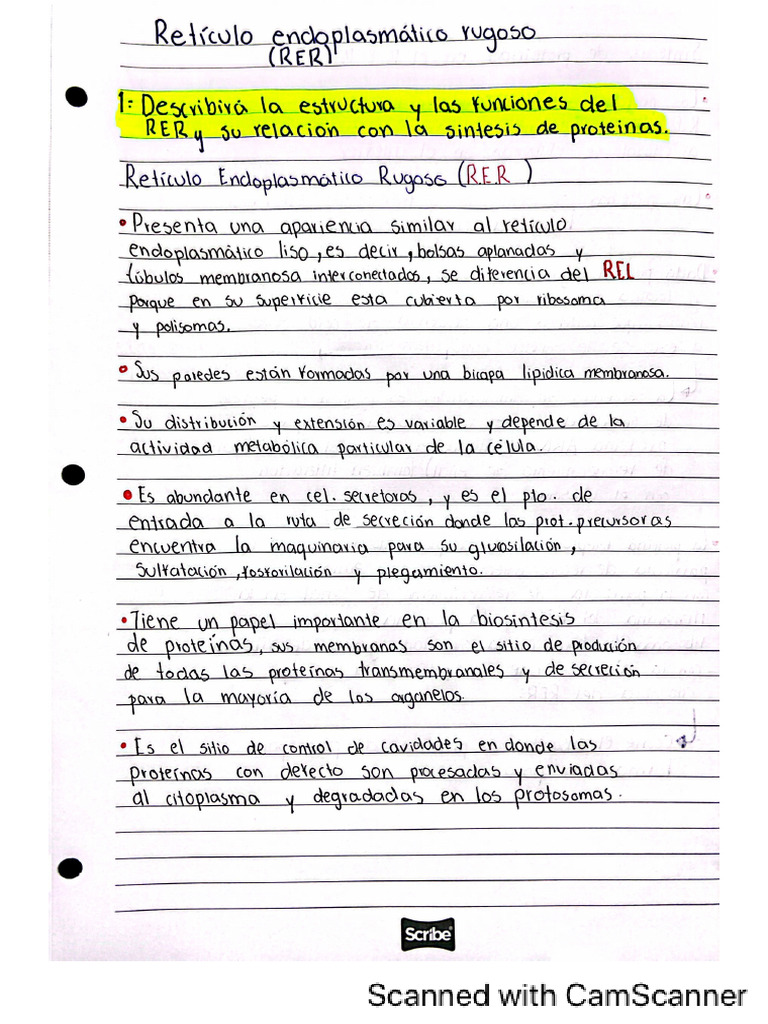 Retículo endoplasmático rugoso
(RER)
1: Describirá la estructura y las funciones del
RER y su relacion con la sintesis de proteinas.
Retículo Endoplasmático Rugoso (R.E.R )
• Presenta una apariencia similar al retículo
endoplasmático liso, es decir, bolsas aplanadas y
túbulos membranosa interconectados, se diferencia del REL
porque en su superficie esta cubierta por ribosoma
y polisomas.
• Sus paredes están formadas por una bicapa lipidica membranosa.
• Su distribución y extensión es variable y depende de la
actividad metabólica particular de la célula.
• Es abundante en cel. secretoras, y es el pto. de
entrada a la ruta de secreción donde las prot. precursoras
encuentra la maquinaria para su glucosilación,
sulfatación, fosforilación y plegamiento.
• Tiene un papel importante en la biosintesis
de proteínas, sus membranas son el sitio de produción
de todas las proteínas transmembranales y de secreción
para la mayoría de los organelos.
• Es el sitio de control de cavidades en donde las
proteínas con defecto son procesadas y enviadas
al citoplasma y degradadas en los protosomas.
Scribe
Scanned with CamScanner